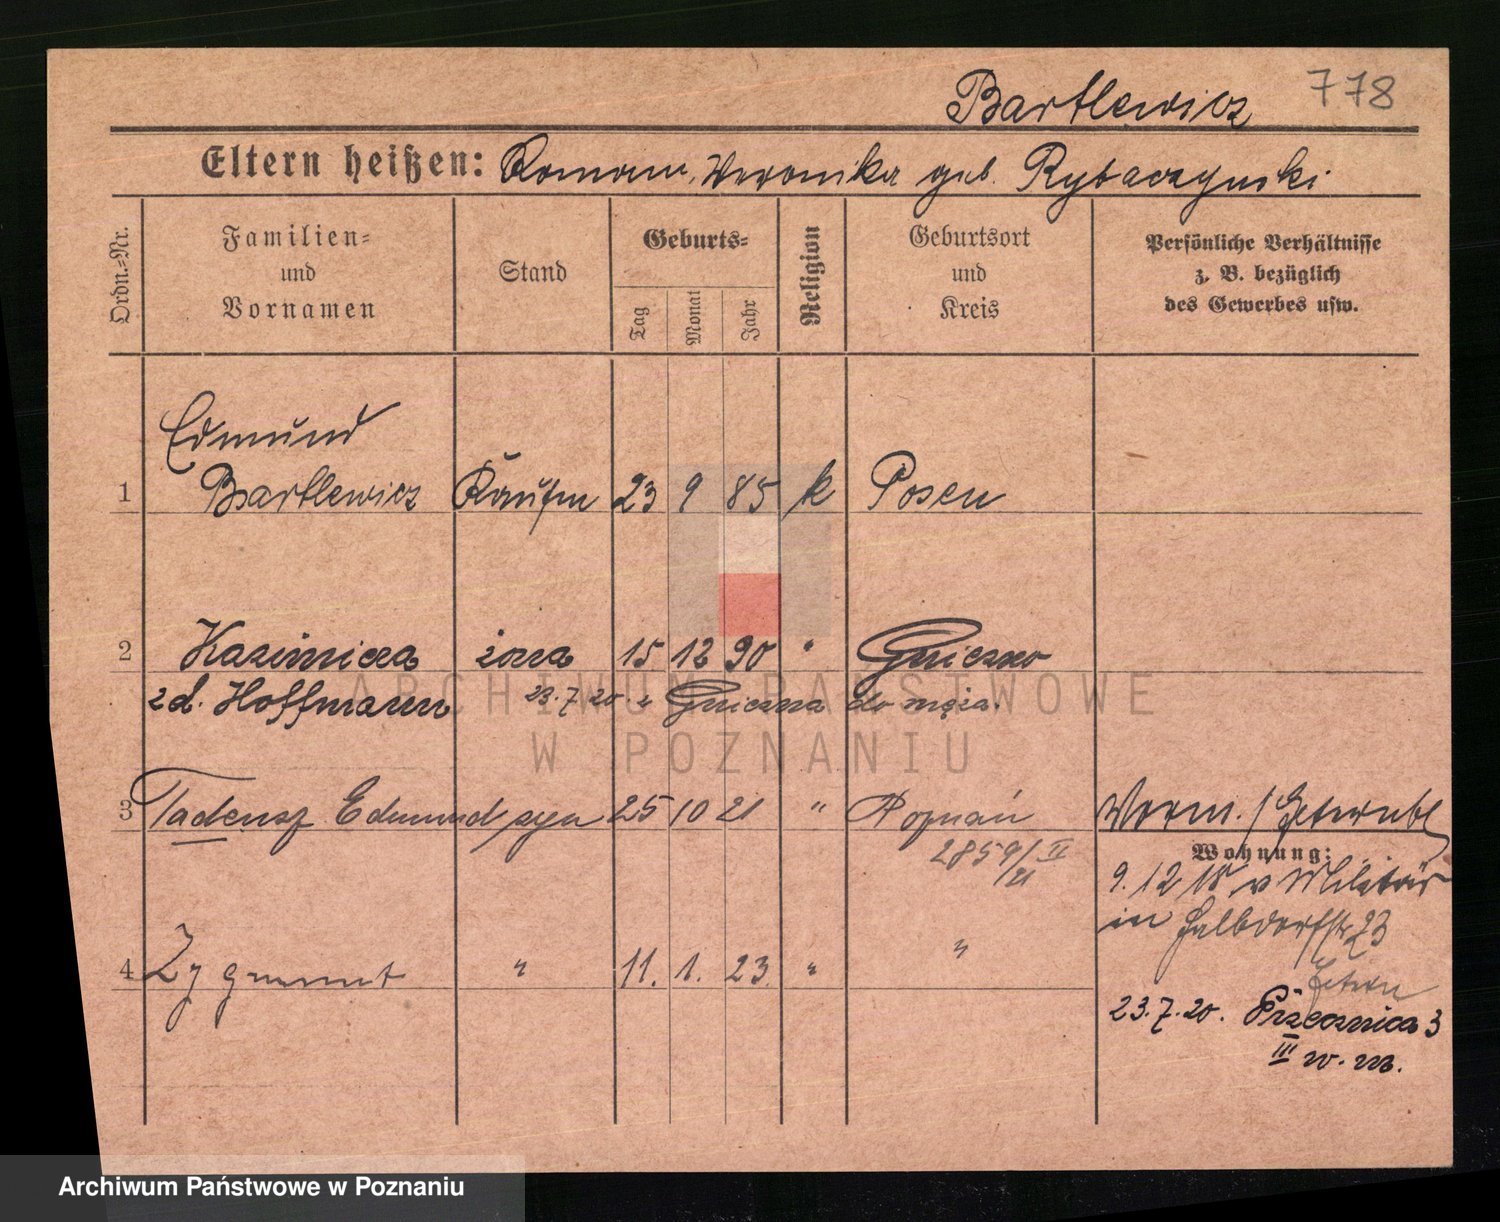 Bartlewicz 778
Eltern heißen: Roman, Weronika geb. Rybaczynski
Ordn.-Nr.
Familien-
und
Vornamen
Stand
Geburts-
Tag
Monat
Jahr
Religion
Geburtsort
und
Kreis
Persönliche Verhältnisse
z. B. bezüglich
des Gewerbes usw.
Edmund
1 Bartlewicz Kaufm 23 9 85 k Posen
2 Kazimiera żona 15 12 90 " Gniezno
zd. Hoffmann 23.7.20. z Gniezna do męża.
3 Tadeusz Edmund syn 25 10 21 " Poznań
2859/II
/21
4 Zygmunt " 11. 1. 23 " "
Wohnung:
9. 12 18 v Militär
in Halbdorfstr 23
Eltern
23.7.20. Przecznica 3
III w. m.
ARCHIWUM PAŃSTWOWE
W POZNANIU
Archiwum Państwowe w Poznaniu